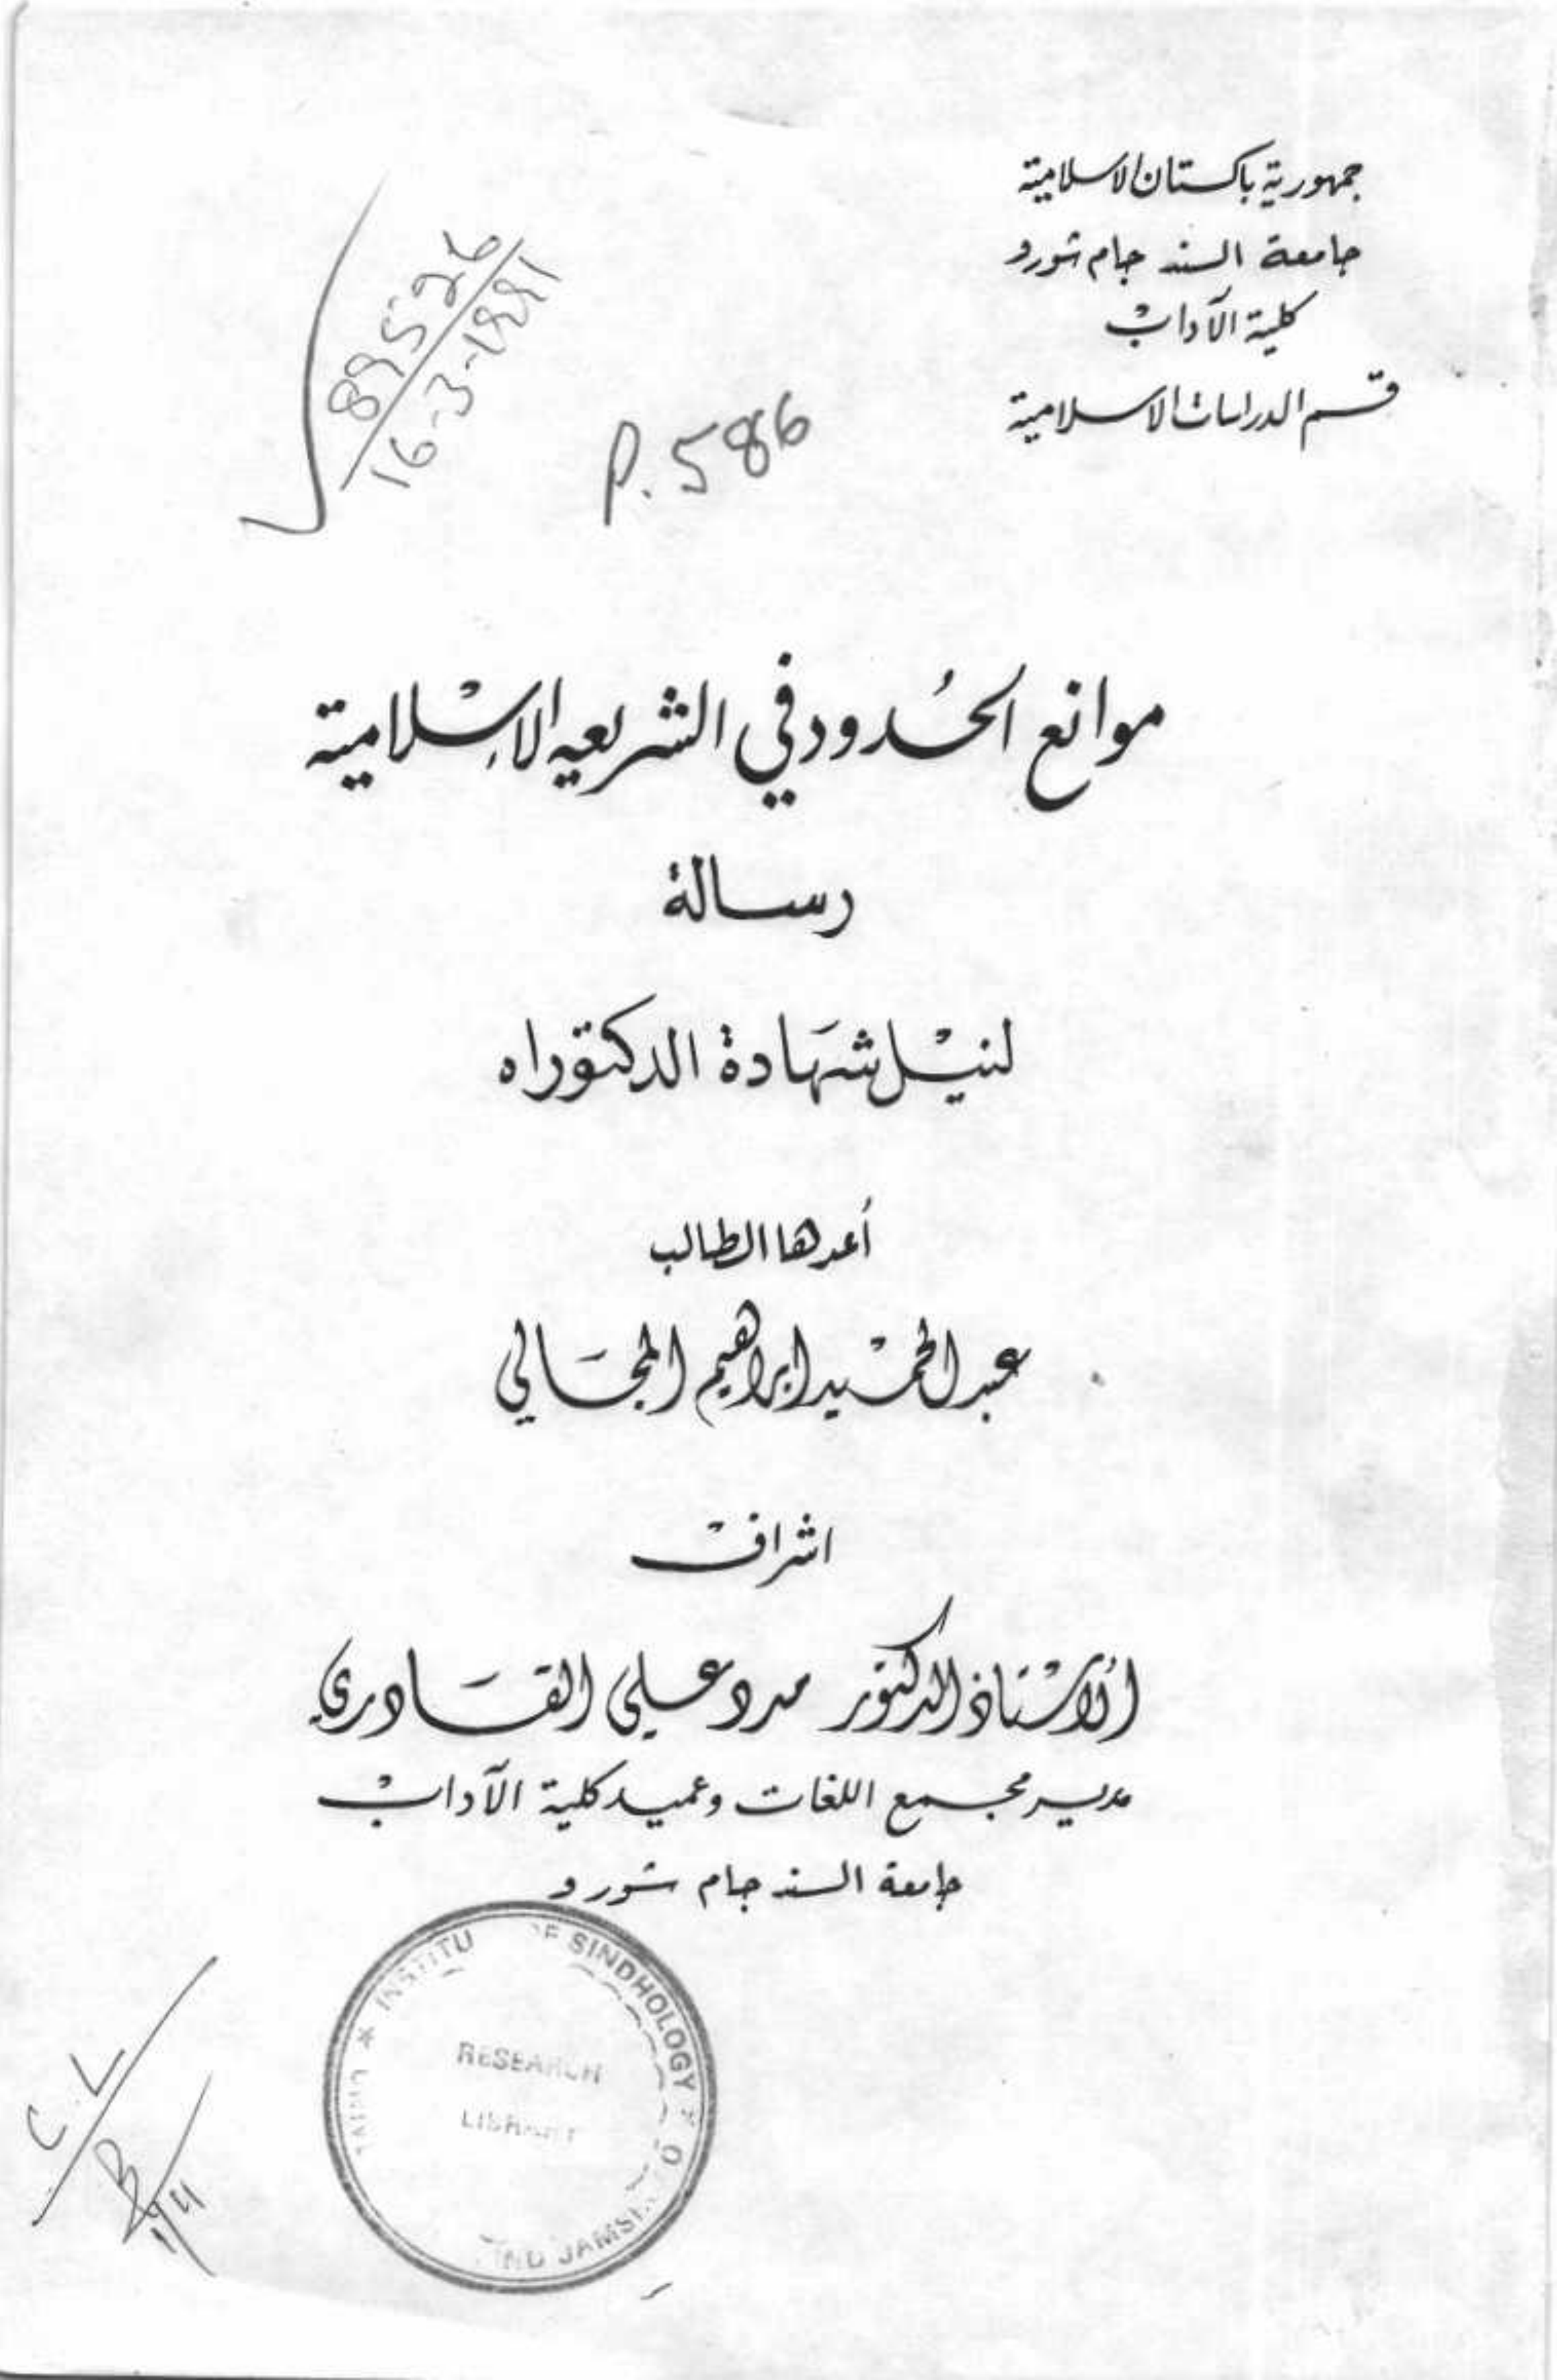 جمهورية باكستان الاسلامية
جامعة السند جام شورو
كلية الآداب
قسم الدراسات الاسلامية
89526
16-3-1991
P. 586
موانع الحُدود في الشريعه الإسْلامية
رسالة
لنيْل شهَادة الدكتوراه
أعدها الطالب
عبد الحمْيد ابراهيم المجَالي
اشراف
ألاسْتاذ الدكتور مدد علي القَادري
مدير مجمع اللغات وعميد كلية الآداب
جامعة السند جام شورو
INSTITU OF SINDHOLOGY
RESEARCH
LIBRARY
C.L